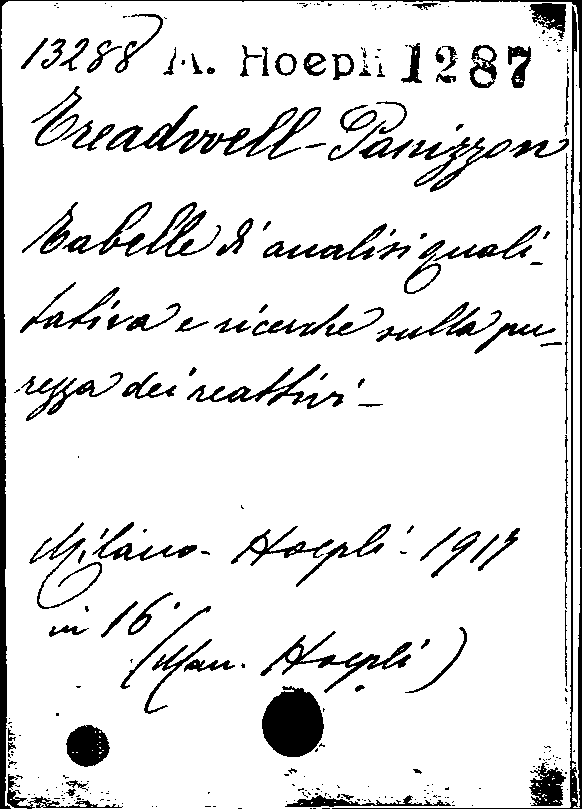 13288 M. Hoepli 1287
Treadwell-Panizzon
Tabelle di analisi quali-
tativa e ricerche sulla pu-
rezza dei reattivi -
Milano - Hoepli - 1917
in 16°
(Man. Hoepli)